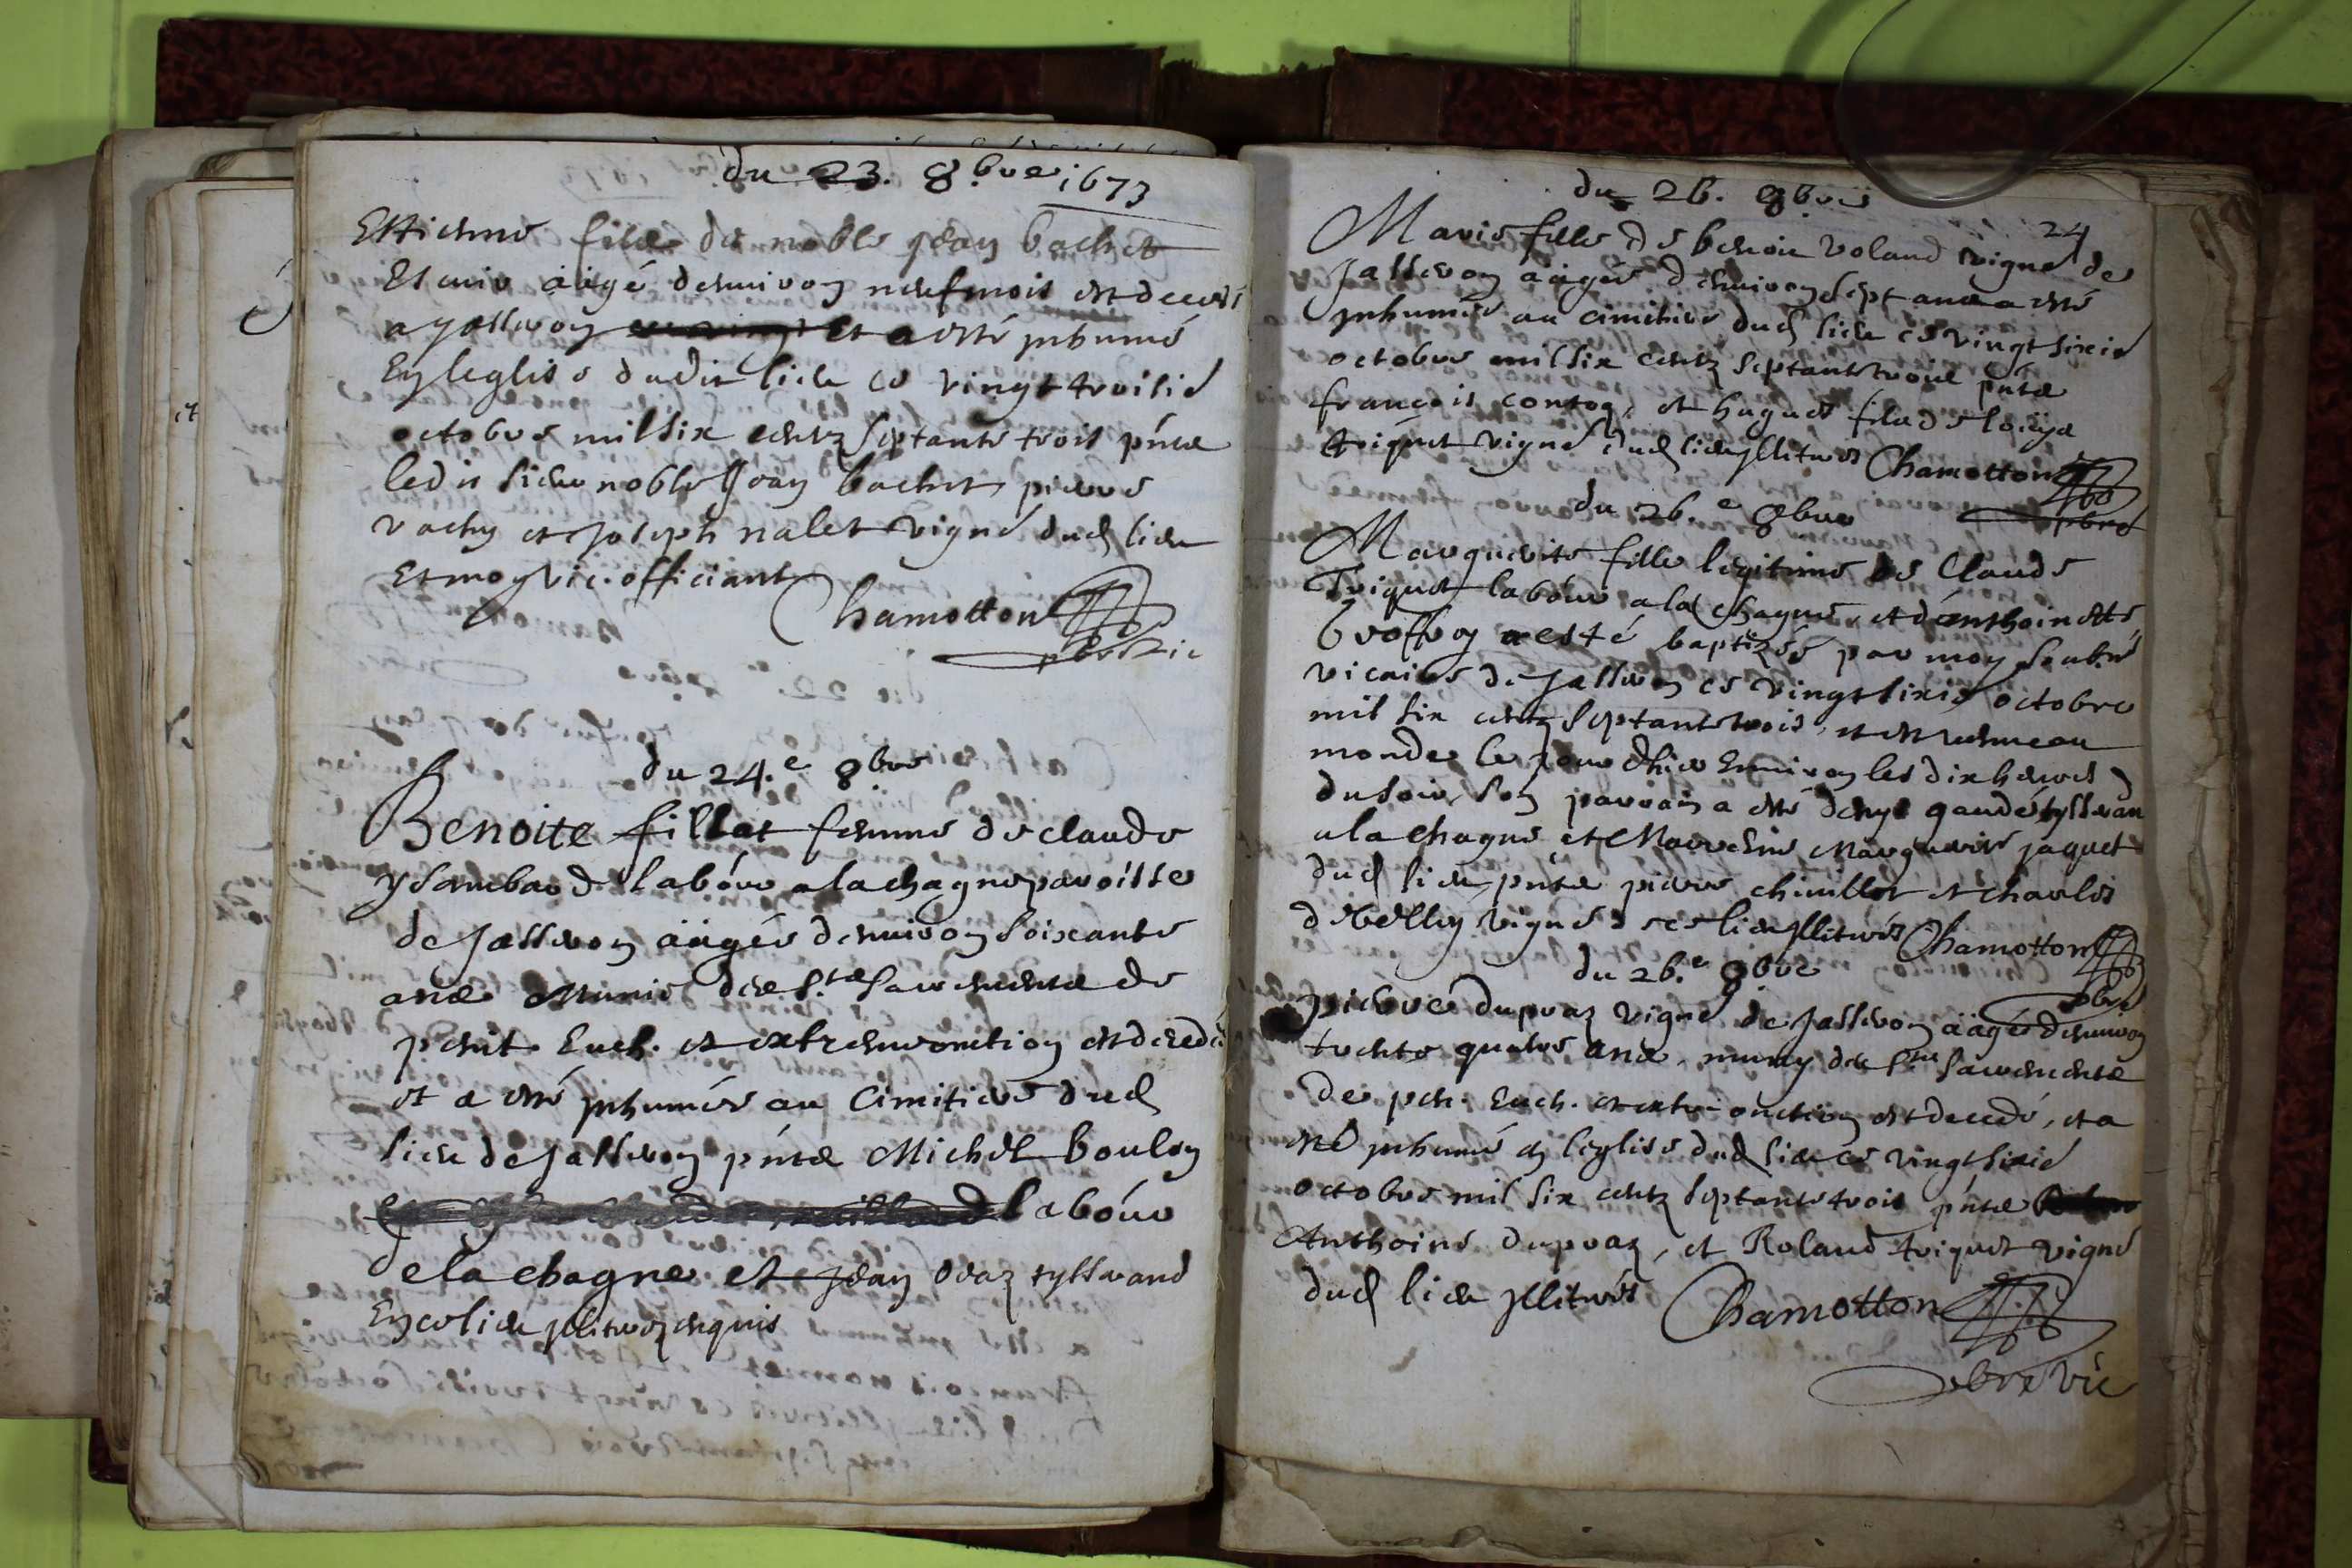 du 23. 8.bre 1673
Estienne filz de noble jean bachet
Escuier aagé denuiron neuf mois est decedé
a jasseron et a esté jnhumé
En leglise dudit lieu ce vingt troisie
octobre mil six centz septante trois pntz
ledit sieur noble Jean bachet pierre
vachy et joseph nalet vigne dud lieu
Et moy vic. officiant
Chamotton
pbre vic
du 24.e 8.bre
Benoite fillat femme de claude
ysambard labour a la chagne paroisse
de Jasseron aagée denuiron soixante
ans munie des s.tz sacrementz de
penit. Euch. et extremeonction est decedée
et a esté jnhumée au Cimitiere dud
lieu de Jasseron pntz Michel boulon
labour
de la chagne et jean tysserand
En ce lieu jllitrez enquis
du 26. 8bre
24
Marie fille de benoit voland vigne de
Jasseron aagée denuiron sept ans a esté
jnhumée au cimitiere dud lieu ce vingt sixie
octobre mil six centz septante trois pntz
françois conton, et hugues filz de
triquet vigne dud lieu jllitres Chamotton
pbre
du 26.e 8bre
Marguerite fille legitime de Claude
Triquet labour a la Chagne, et danthoinette
broffon a esté baptizée par moy soubne
vicaire de Jasseron ce vingt sixie octobre
mil six centz septante trois, et est venue au
monde le jour dhier Enuiron les dix heures
du soir, son parrain a esté denys gaudet tysseran
a la chagne et Marreine Marguerite jaquet
dud lieu pntz pierre chinillon et charles
debelley vigne de ce lieu jllitres Chamotton
pbre
du 26.e 8bre
pierre dupraz vigne de Jasseron aagé denuiron
trente quatre ans, muny des s.tz sacrementz
de pen. Euch. et extr-onction est decedé, et a
esté jnhumé en leglise dud lieu ce vingt sixie
octobre mil six centz septante trois pntz
Anthoine dupraz, et Roland triquet vigne
dud lieu jllitrés Chamotton
pbre vic